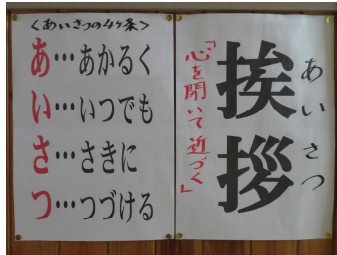 ＜あいさつの4ヶ条＞
あ…あかるく
い…いつでも
さ…さきに
つ…つづける
挨拶
あいさつ
「心を開いて近づく」